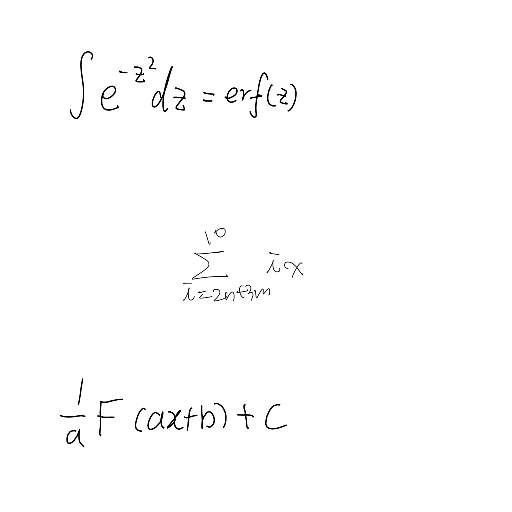 ∫ e^{-z^2} dz = erf(z)
\sum_{i=2n+3m}^{10} ix
\frac{1}{a} F (ax+b) + C